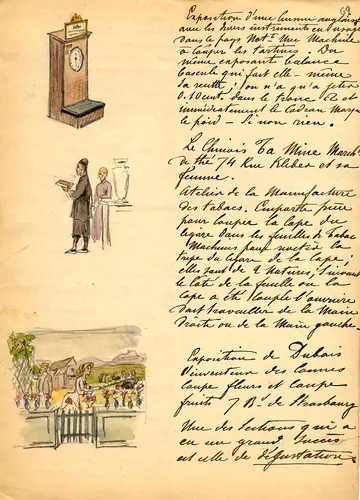 69
Exposition d'une cuisine anglaise
avec les divers instruments en usage
dans le pays Not.t Une Machine
à couper les Tartines. Du
même exposant balance
bascule qui fait elle-même
sa recette; on n'a qu'a jeter
0.10 cent. dans le tronc
immédiatement le cadran marque
le poid – Si non rien.
Le Chinois Ta Mine March.d
de thé 74 Rue Kleber et sa
femme.
Atelier de la Manufacture
des tabacs. Emporte pièce
pour couper la cape du
cigare dans les feuilles de tabac
Machines pour
tripe du cigare de la cape;
elles sont de 2 Natures, suivant
le côté de la feuille ou la
cape a été coupée l'ouvrière
doit travailler de la Main
droite ou de la Main gauche.
Exposition de Dubois
l'inventeur des Cannes
coupe fleurs et coupe
fruits 7 B.d de Strasbourg
Une des Sections qui a
eu un grand succès
est celle de dégustation.